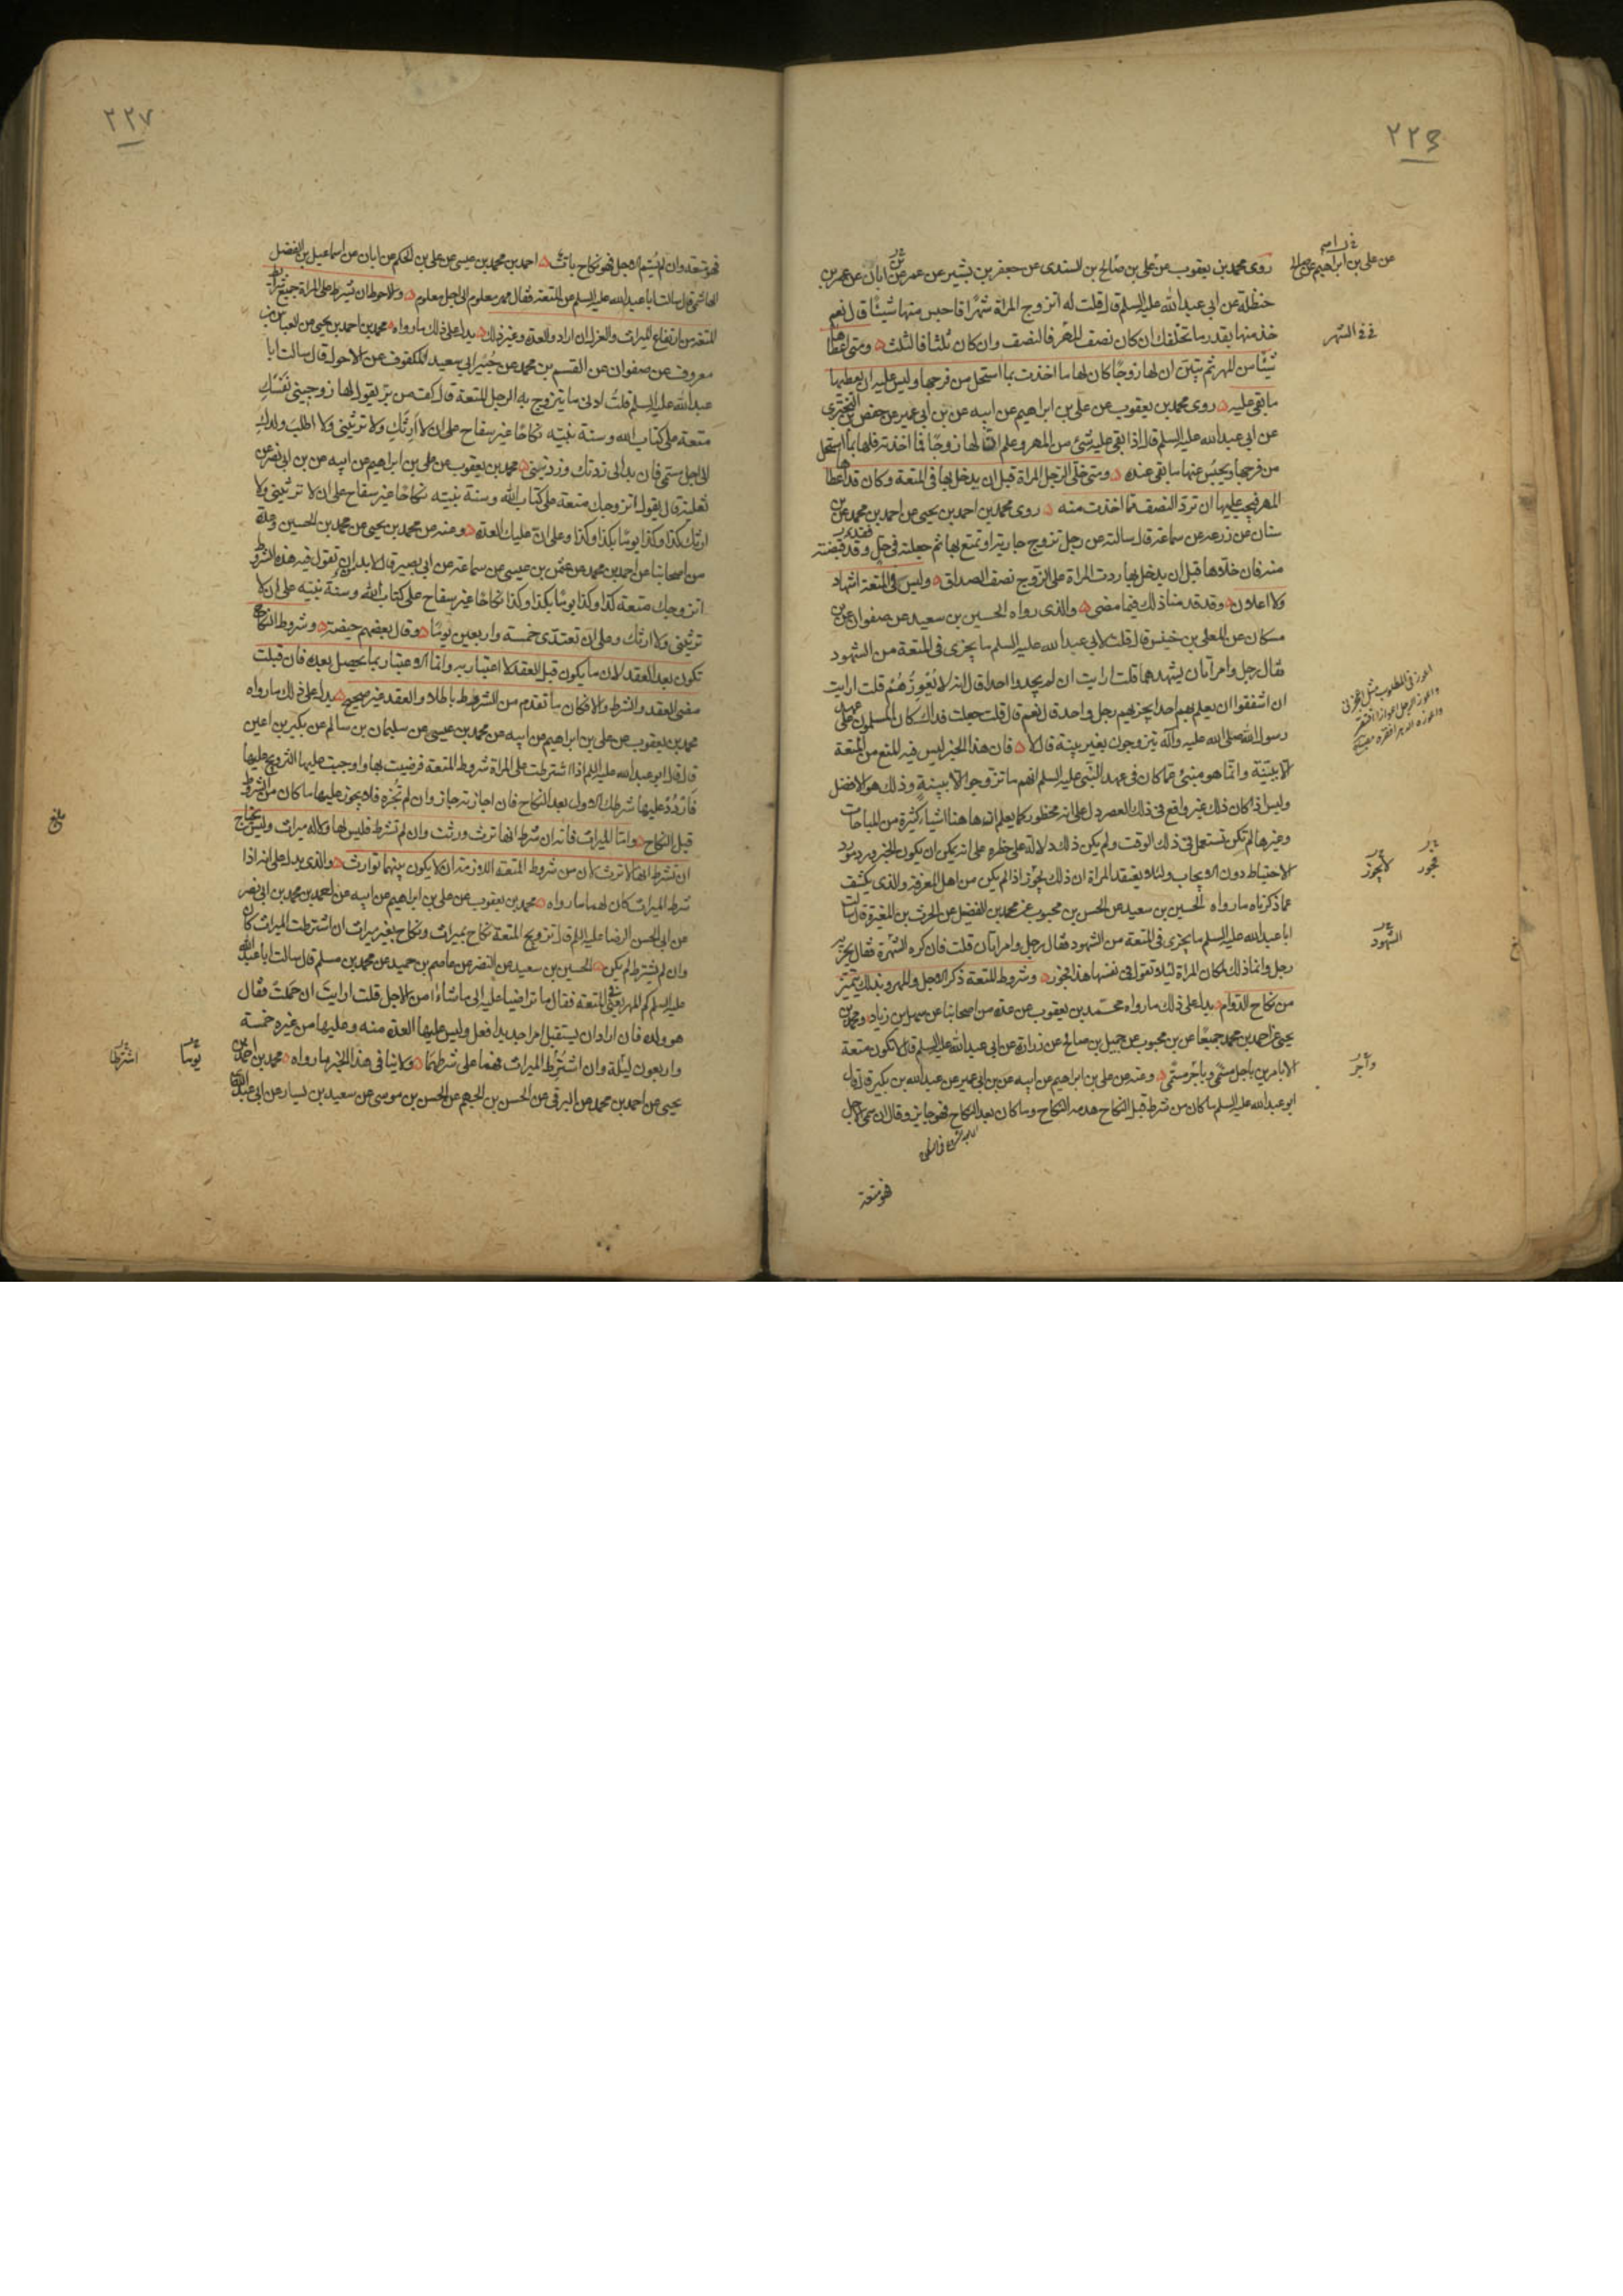 ٢٢٦
روى محمد بن يعقوب عن علي بن صالح بن السندى عن جعفر بن بشير عن عمر بن ابان عن عمر بن
حنظلة عن ابي عبدالله عليه السلم قال قلت له اتزوج المراة شهرًا فاحبس منها شيئًا قال نعم
خذ منها بقدر ما تخلفك ان كان نصف الشهر فالنصف وان كان ثلثا فالثلث ومتى اعطاها
شيئًا من المهر ثم تبين ان لها زوجًا كان لها ما اخذت بما استحل من فرجها وليس عليه ان يعطيها
ما بقى عليه روى محمد بن يعقوب عن علي بن ابراهيم عن ابيه عن بن ابي عمير عن حفص بن البختري
عن ابي عبدالله عليه السلم قال اذا بقى عليه شئ من المهر وعلم ان لها زوجًا فما اخذته فلها بما استحل
من فرجها ويحبس عنها ما بقى عنده ومتى خلى الرجل المراة قبل ان يدخل بها في المتعة وكان قد اعطاها
المهر فيجب عليها ان ترد النصف مما اخذت منه روى محمد بن احمد بن يحيى عن احمد بن محمد عن
سنان عن زرعه عن سماعة قال سالته عن رجل تزوج جارية او تمتع بها ثم جعلته في حل وقد قبضته
منه فان خلاها قبل ان يدخل بها ردت المراة على الزوج نصف الصداق وليس في المتعة اشهاد
ولا اعلان وقد قدمنا ذلك فيما مضى والذى رواه الحسين بن سعيد عن صفوان عن بن
مسكان عن المعلى بن خنيس قال قلت لابي عبدالله عليه السلم ما يجزى في المتعة من الشهود
فقال رجل وامراتان يشهدهما قلت ارايت ان لم يجدوا احدا قال انه لا يُعْوِزُهُمْ قلت ارايت
ان اشفقوا ان يعلم بهم احد ايجزيهم رجل واحد قال نعم قال قلت جعلت فداك كان المسلمون على عهد
رسول الله صلى الله عليه وآله يتزوجون بغير بينة قال لا فان هذا الخبر ليس فيه المنع من المتعة
الا ببينة وانما هو منبئ عما كان في عهد النبي عليه السلم انهم ما تزوجوا الا ببينة وذلك هو الافضل
وليس اذا كان ذلك غير واقع في ذلك العصر دل على انه محظور كما يعلم ان هاهنا اشياء كثيرة من المباحات
وغيرها لم تكن تستعمل في ذلك الوقت ولم يكن ذلك دلالة على حظره على انه يمكن ان يكون الخبر ورد مورد
الاحتياط دون الايجاب ولئلا يعتقد المراة ان ذلك فجور اذا لم يكن من اهل المعرفة والذى يكشف
عما ذكرناه ما رواه الحسين بن سعيد عن الحسن بن محبوب عن محمد بن الفضيل عن الحرث بن المغيرة قال سالت
ابا عبدالله عليه السلم ما يجزى في المتعة من الشهود فقال رجل وامراتان قلت فان كره الشهرة فقال يجزيه
رجل وانما ذلك لمكان المراة لئلا تقول في نفسها هذا فجور وشروط المتعة ذكر الاجل والمهر وبذلك يتميز
من نكاح الدوام يدل على ذلك ما رواه محمد بن يعقوب عن عدة من اصحابنا عن سهل بن زياد ومحمد بن
يحيى عن احمد بن محمد جميعًا عن بن محبوب عن جميل بن صالح عن زرارة عن ابي عبدالله عليه السلم قال لا تكون متعة
الا بامرين باجل مسمى وباجر مسمى وعنه عن علي بن ابراهيم عن ابيه عن بن ابي عمير عن عبدالله بن بكير قال قال
ابو عبدالله عليه السلم ما كان من شرط قبل النكاح هدمه النكاح وما كان بعد النكاح فهو جايز وقال ان سمى الاجل
فهو متعة
عن علي بن ابراهيم عن صالح
في الشهر
فجور
لا يجوز
الشهود
وآجر
٢٢٧
فهو متعة وان لم يسم الاجل فهو نكاح بات احمد بن محمد بن عيسى عن علي بن الحكم عن ابان عن اسماعيل بن الفضل
الهاشمى قال سالت ابا عبدالله عليه السلم عن المتعة فقال مهر معلوم الى اجل معلوم والاحوط ان يشرط على المراة جميع شرائط
المتعة من ارتفاع الميراث والعزل ان اراد والعدة وغير ذلك يدل على ذلك ما رواه محمد بن احمد بن يحيى عن العباس بن
معروف عن صفوان عن القسم بن محمد عن جُبَيْر ابي سعيد المكفوف عن الاحول قال سالت ابا
عبدالله عليه السلم قلت ادنى ما يتزوج به الرجل المتعة قال كف من بر يقول لها زوجيني نفسكِ
متعة على كتاب الله وسنة نبيه نكاحًا غير سفاح على ان لا ارثك ولا ترثيني ولا اطلب ولدك
الى اجل مسمى فان بدا لى زدتك وزدتيني محمد بن يعقوب عن علي بن ابراهيم عن ابيه عن بن ابي نصر عن
ثعلبة قال يقول اتزوجك متعة على كتاب الله وسنة نبيه نكاحًا غير سفاح على ان لا ترثيني ولا
ارثك كذا وكذا يومًا بكذا وكذا وعلى ان عليك العدة وعنه عن محمد بن يحيى عن محمد بن الحسين وعدة
من اصحابنا عن احمد بن محمد عن عثمن بن عيسى عن سماعة عن ابي بصير قال لا بد ان تقول فيه هذه الشروط
اتزوجك متعة كذا وكذا يومًا بكذا وكذا نكاحًا غير سفاح على كتاب الله وسنة نبيه على ان لا
ترثيني ولا ارثك وعلى ان تعتدى خمسة واربعين يومًا وقال بعضهم حيضة وشروط النكاح
تكون بعد العقد لان ما يكون قبل العقد لا اعتبار به وانما الاعتبار بما يحصل بعده فان قبلت
مضى العقد والشرط والا فكان ما تقدم من الشروط باطلا والعقد غير صحيح يدل على ذلك ما رواه
محمد بن يعقوب عن علي بن ابراهيم عن ابيه عن محمد بن عيسى عن سليمان بن سالم عن بكير بن اعين
قال قال ابو عبدالله عليه السلم اذا اشترطت على المراة شروط المتعة فرضيت بها واوجبت عليها التزويج عليها
فَارْدُدْ عليها شرطك الاول بعد النكاح فان اجازته جاز وان لم تُجزه فلا يجوز عليها ما كان من الشروط
قبل النكاح واما الميراث فانه ان شرط انها ترث ورثت وان لم تشرط فليس لها ولا له ميراث وليس يحتاج
ان يشرط انها لا ترث لان من شروط المتعة اللازمة ان لا يكون بينهما توارث والذى يدل على انه اذا
شرط الميراث كان لهما ما رواه محمد بن يعقوب عن علي بن ابراهيم عن ابيه عن احمد بن محمد بن ابي نصر
عن ابي الحسن الرضا عليه السلم قال تزويج المتعة نكاح بميراث ونكاح بغير ميراث ان اشترطت الميراث كان
وان لم يشترط لم يكن الحسين بن سعيد عن النضر عن عاصم بن حميد عن محمد بن مسلم قال سالت ابا عبدالله
عليه السلم كم المهر يعني في المتعة فقال ما تراضيا عليه الى ما شاءا من الاجل قلت ارايت ان حملت فقال
هو ولده فان اراد ان يستقبل امرا جديدا فعل وليس عليها العدة منه وعليها من غيره خمسة
واربعون ليلة وان اشترط الميراث فهما على شرطهما ولا ينافى هذا الخبر ما رواه محمد بن احمد بن
يحيى عن احمد بن محمد عن البرقى عن الحسن بن الجهم عن الحسن بن موسى عن سعيد بن يسار عن ابي عبدالله
بلغ
يومًا
اشترطا